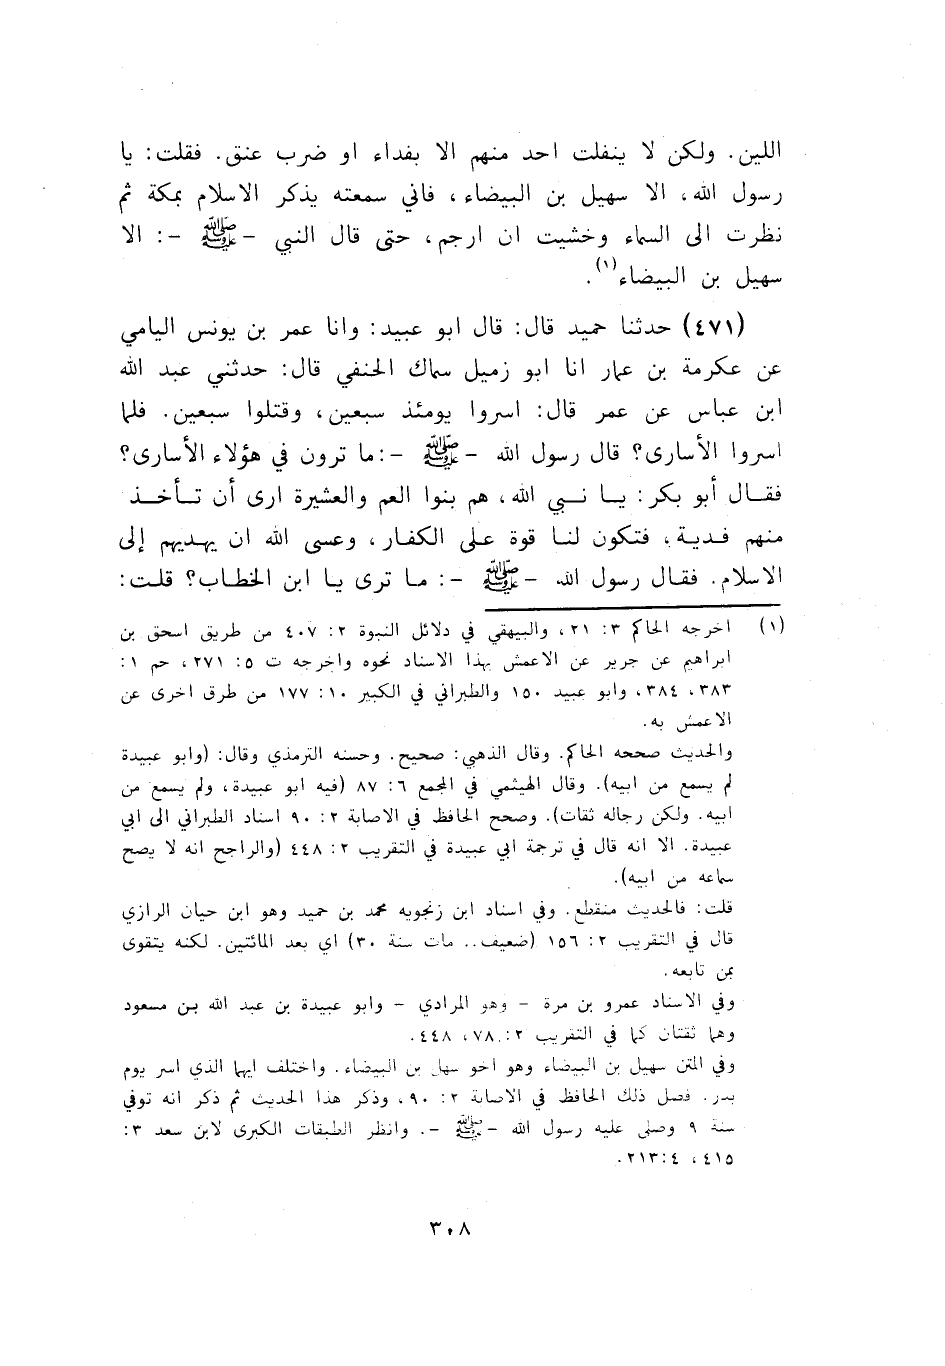 اللين. ولكن لا ينفلت احد منهم الا بفداء او ضرب عنق. فقلت: يا
رسول الله، الا سهيل بن البيضاء، فاني سمعته يذكر الاسلام بمكة ثم
نظرت الى السماء وخشيت ان ارجم، حتى قال النبي - ﷺ -: الا
سهيل بن البيضاء(١).
(٤٧١) حدثنا حميد قال: قال ابو عبيد: وانا عمر بن يونس اليامي
عن عكرمة بن عمار انا ابو زميل سماك الحنفي قال: حدثني عبد الله
ابن عباس عن عمر قال: اسروا يومئذ سبعين، وقتلوا سبعين. فلما
اسروا الأسارى؟ قال رسول الله - ﷺ -: ما ترون في هؤلاء الأسارى؟
فقال أبو بكر: يا نبي الله، هم بنوا العم والعشيرة ارى أن تأخذ
منهم فدية، فتكون لنا قوة على الكفار، وعسى الله ان يهديهم إلى
الاسلام. فقال رسول الله - ﷺ -: ما ترى يا ابن الخطاب؟ قلت:
(١) اخرجه الحاكم ٣: ٢١، والبيهقي في دلائل النبوة ٢: ٤٠٧ من طريق اسحق بن
ابراهيم عن جرير عن الاعمش بهذا الاسناد نحوه واخرجه ت ٥: ٢٧١، حم ١:
٣٨٣، ٣٨٤، وابو عبيد ١٥٠ والطبراني في الكبير ١٠: ١٧٧ من طرق اخرى عن
الاعمش به.
والحديث صححه الحاكم. وقال الذهبي: صحيح. وحسنه الترمذي وقال: (وابو عبيدة
لم يسمع من ابيه). وقال الهيثمي في المجمع ٦: ٨٧ (فيه ابو عبيدة، ولم يسمع من
ابيه. ولكن رجاله ثقات). وصحح الحافظ في الاصابة ٢: ٩٠ اسناد الطبراني الى ابي
عبيدة. الا انه قال في ترجمة ابي عبيدة في التقريب ٢: ٤٤٨ (والراجح انه لا يصح
سماعه من ابيه).
قلت: فالحديث منقطع. وفي اسناد ابن زنجويه محمد بن حميد وهو ابن حيان الرازي
قال في التقريب ٢: ١٥٦ (ضعيف.. مات سنة ٣٠) اي بعد المائتين. لكنه يتقوى
بمن تابعه.
وفي الاسناد عمرو بن مرة - وهو المرادي - وابو عبيدة بن عبد الله بن مسعود
وهما ثقتان كما في التقريب ٢: ٧٨، ٤٤٨.
وفي المتن سهيل بن البيضاء وهو اخو سهل بن البيضاء. واختلف ايهما الذي اسر يوم
بدر. فصل ذلك الحافظ في الاصابة ٢: ٩٠، وذكر هذا الحديث ثم ذكر انه توفي
سنة ٩ وصلى عليه رسول الله - ﷺ -. وانظر الطبقات الكبرى لابن سعد ٣:
٤١٥، ٤: ٢١٣.
٣٠٨